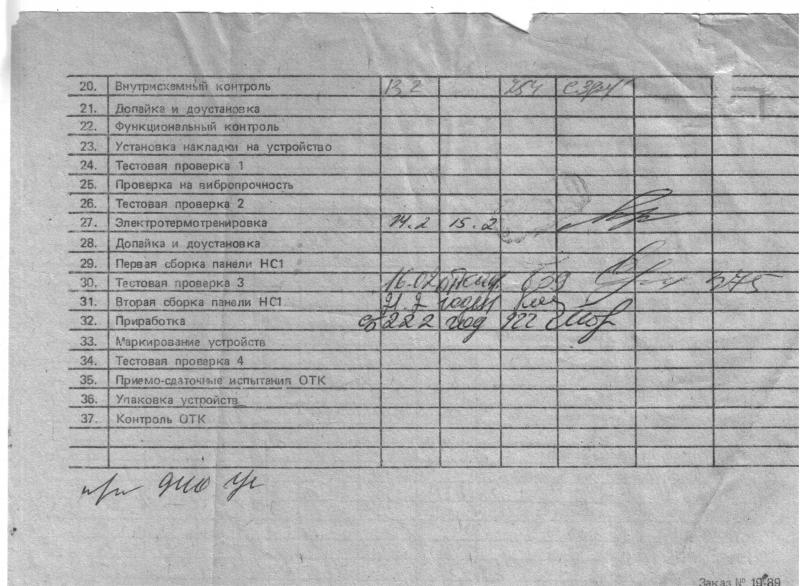 20. Внутрисхемный контроль 13.2 254
21. Допайка и доустановка
22. Функциональный контроль
23. Установка накладки на устройство
24. Тестовая проверка 1
25. Проверка на вибропрочность
26. Тестовая проверка 2
27. Электротермотренировка 14.2 15.2
28. Допайка и доустановка
29. Первая сборка панели НС1
30. Тестовая проверка 3 16.02 375
31. Вторая сборка панели НС1 21.2
32. Приработка 22.2 год 922
33. Маркирование устройств
34. Тестовая проверка 4
35. Приемо-сдаточные испытания ОТК
36. Упаковка устройств
37. Контроль ОТК
Заказ № 19-89